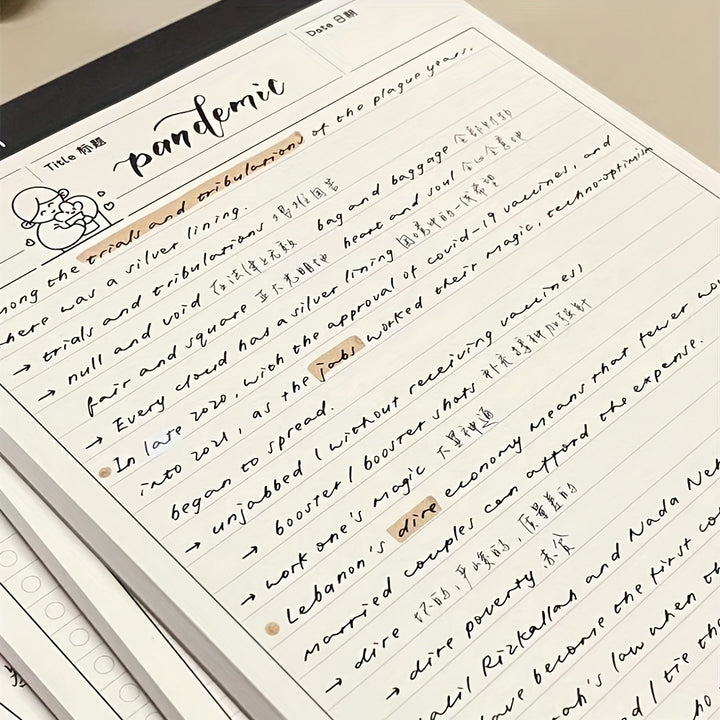 Date 日期
Title 标题
pandemic
mong the trials and tribulations of the plague years,
here was a silver lining.
→ trials and tribulations 艰难困苦 bag and baggage
→ null and void 在法律上无效 heart and soul 全心全意地
fair and square 正大光明地
→ Every cloud has a silver lining 困境中的一线希望
In late 2020, with the approval of covid-19 vaccines, and
into 2021, as the jabs worked their magic, techno-optimism
began to spread.
→ unjabbed (without receiving vaccines)
→ booster / booster shots 补充接种加强针
→ work one's magic 大显神通
Lebanon's dire economy means that fewer wou
married couples can afford the expense.
→ dire 坏的,严峻的,质量差的
→ dire poverty 赤贫
alil Rizkallah and Nada Neh
ave become the first co
ah's law when th
d I tie the
ho